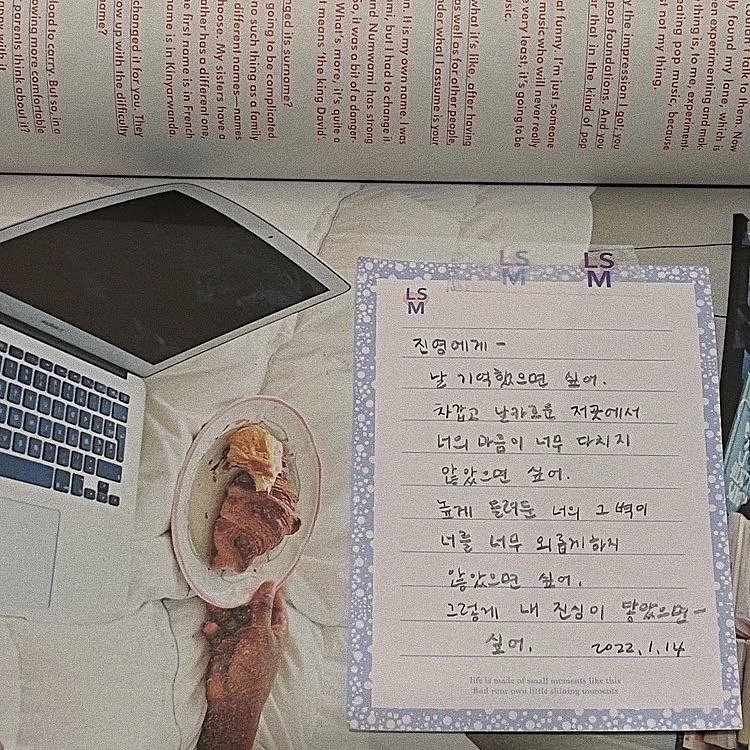 talk to them. Now
found
and my lane, which is
experimenting and mak-
thing is, to me, experiment.
pop music, because
not my thing.
the impression I got: you
pop foundations. And you
that in the kind of pop
funny. I'm just someone
music who will never really
very least, it's going to be
what it's like, after having
as well as for other people,
under what I assume is your
It is my own name. I was
but I had to change it
and Numwami has strong
So, it was a bit of a danger-
What's more, it's quite a
means 'the king David'.
its surname?
going to be complicated.
no such thing as a family
different names—names
My sisters have a
has a different one
first name is in French
name is in Kinyarwanda.
changed it for you. They
up with the difficulty
name?
load to carry. But so, in a
more comfortable
parents think about it?
with it.
LS
M
LS
M
LS
M
진영에게 -
날 기억했으면 싶어.
차갑고 날카로운 저곳에서
너의 마음이 너무 다치지
않았으면 싶어.
높게 둘러둔 너의 그 벽이
너를 너무 외롭게 하지
않았으면 싶어.
그렇게 내 진심이 닿았으면-
싶어. 2022.1.14
life is made of small moments like this
find your own little shining moments